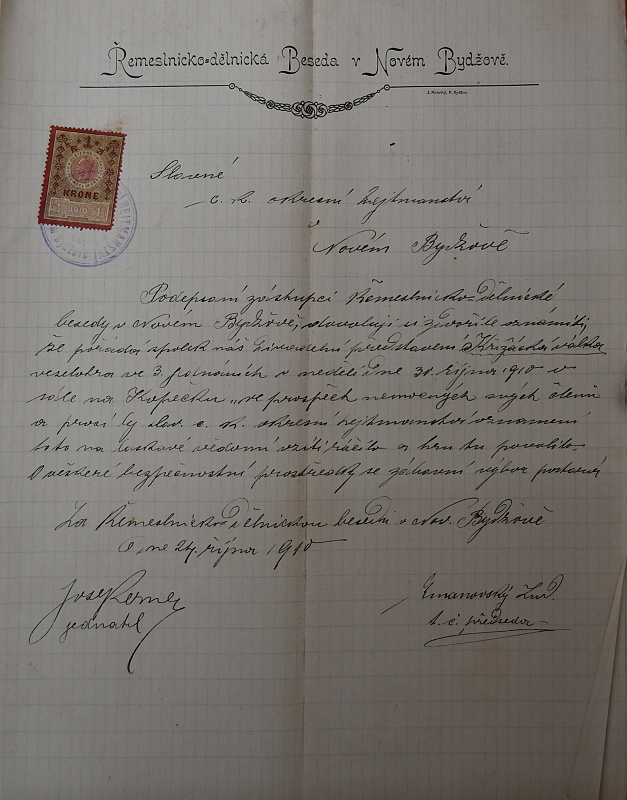 Řemeslnicko-dělnická Beseda v Novém Bydžově.
J. Novotný, N. Bydžov.
1
KRONE
1 1910 1
Slavné
c. k. okresní hejtmanství
v
Novém Bydžově
Podepsaní zástupci Řemeslnicko-Dělnické
besedy v Novém Bydžově, dovolují si zdvořile oznámiti,
že pořádá spolek náš Divadelní představení "Křižácká válka
veselohra ve 3. jednáních v neděli dne 30. října 1910 v
sále na Kopečku „ve prospěch nemocných svých členů
a prosí by slav. c. k. okresní hejtmanství oznámení
toto na laskavé vědomí vzíti ráčilo a hru tu povolilo.
O veškeré bezpečnostní prostředky se zábavní výbor postará
Za Řemeslnicko Dělnickou besedu v Nov. Bydžově
Dne 24. října 1910
Josef Kerner
jednatel
Emanovský Lud.
t. č. předseda